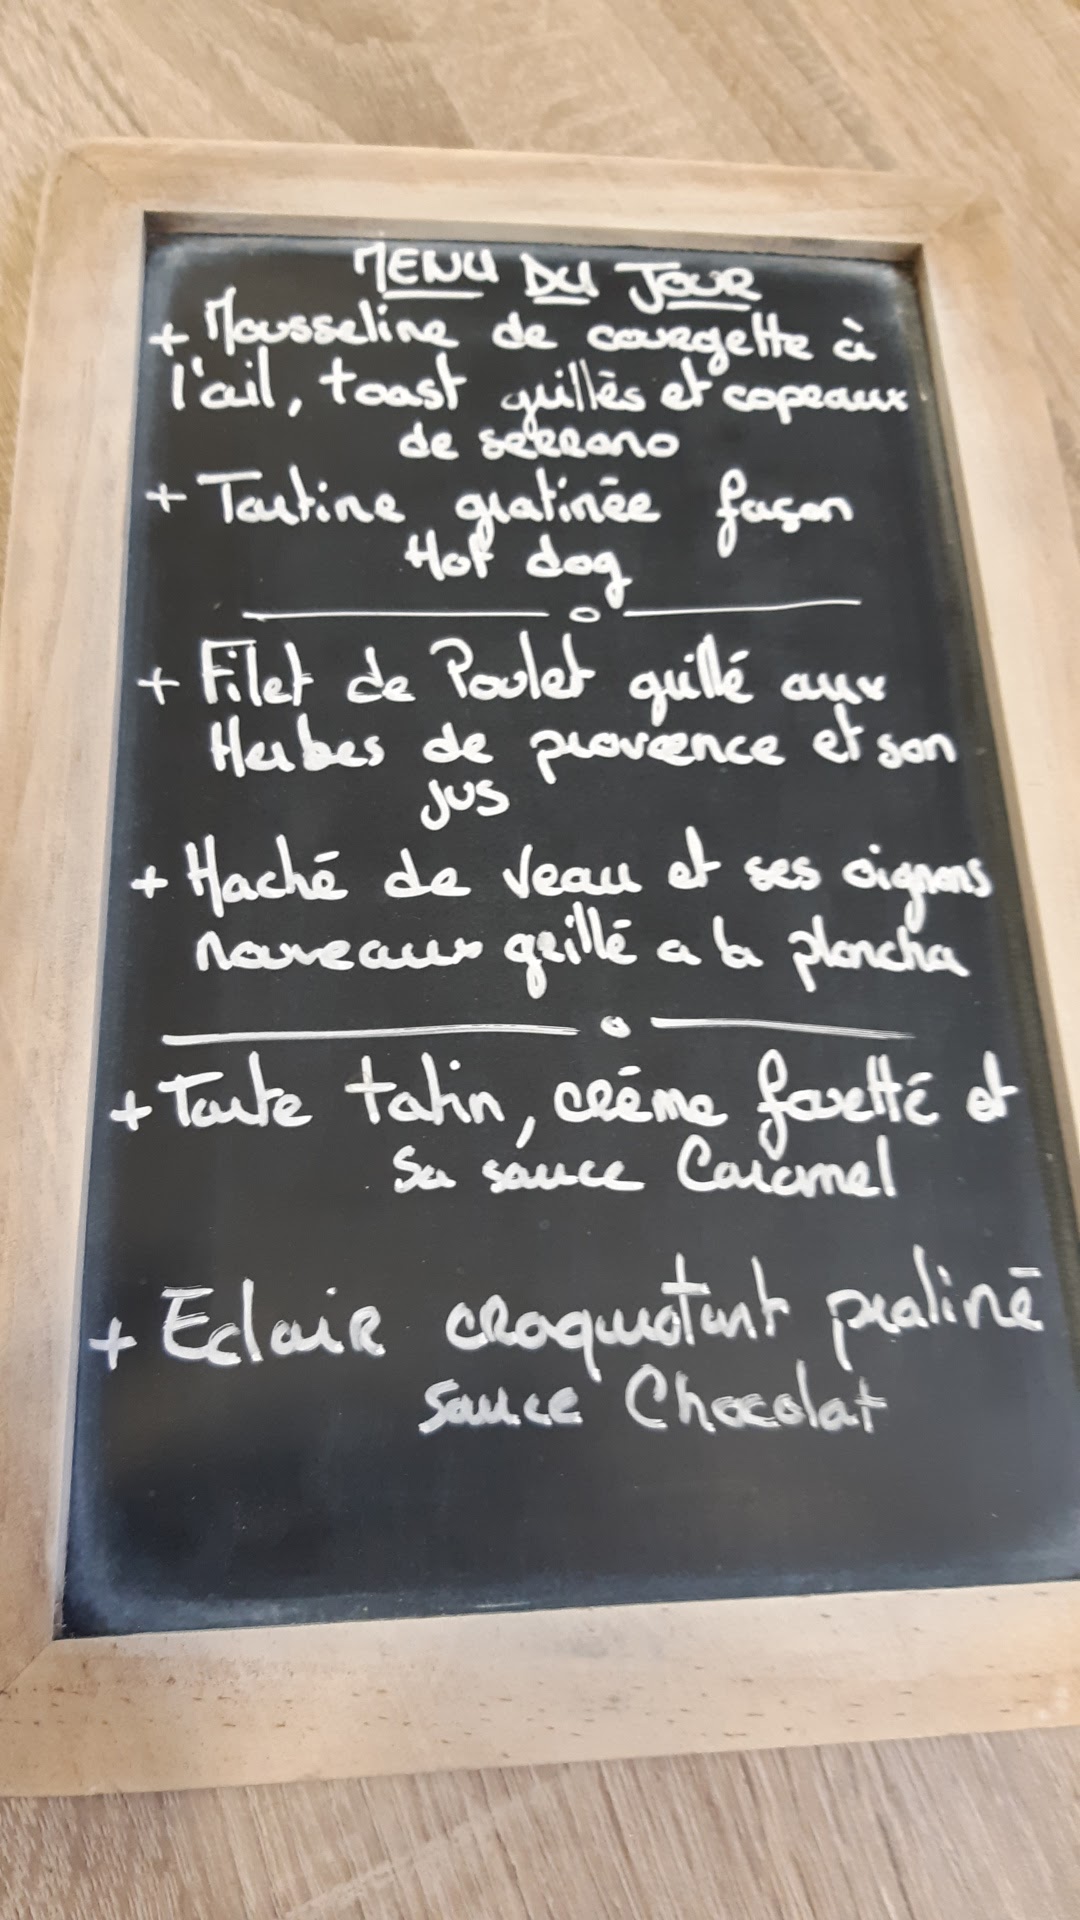 MENU DU JOUR
+ Mousseline de courgette à
l'ail, toast grillés et copeaux
de serrano
+ Tartine gratinée façon
Hot dog
+ Filet de Poulet grillé aux
Herbes de provence et son
jus
+ Haché de Veau et ses oignons
nouveaux grillé a la plancha
+ Tarte tatin, crème fouetté et
Sa sauce Caramel
+ Eclair croquotant praliné
sauce Chocolat